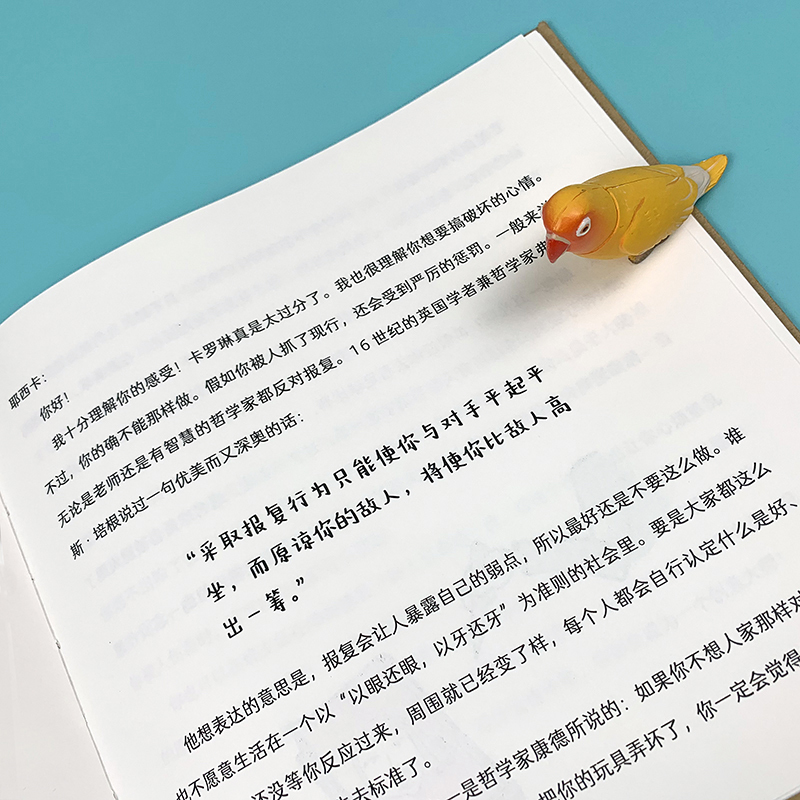 耶西卡：
你好！
我十分理解你的感受！卡罗琳真是太过分了。我也很理解你想要搞破坏的心情。
不过，你的确不能那样做。假如你被人抓了现行，还会受到严厉的惩罚。一般来
无论是老师还是有智慧的哲学家都反对报复。16 世纪的英国学者兼哲学家弗
斯·培根说过一句优美而又深奥的话：
“采取报复行为只能使你与对手平起平
坐，而原谅你的敌人，将使你比敌人高
出一筹。”
他想表达的意思是，报复会让人暴露自己的弱点，所以最好还是不要这么做。谁
也不愿意生活在一个以“以眼还眼，以牙还牙”为准则的社会里。要是大家都这么
还没等你反应过来，周围就已经变了样，每个人都会自行认定什么是好、
去标准了。
一是哲学家康德所说的：如果你不想人家那样对
把你的玩具弄坏了，你一定会觉得